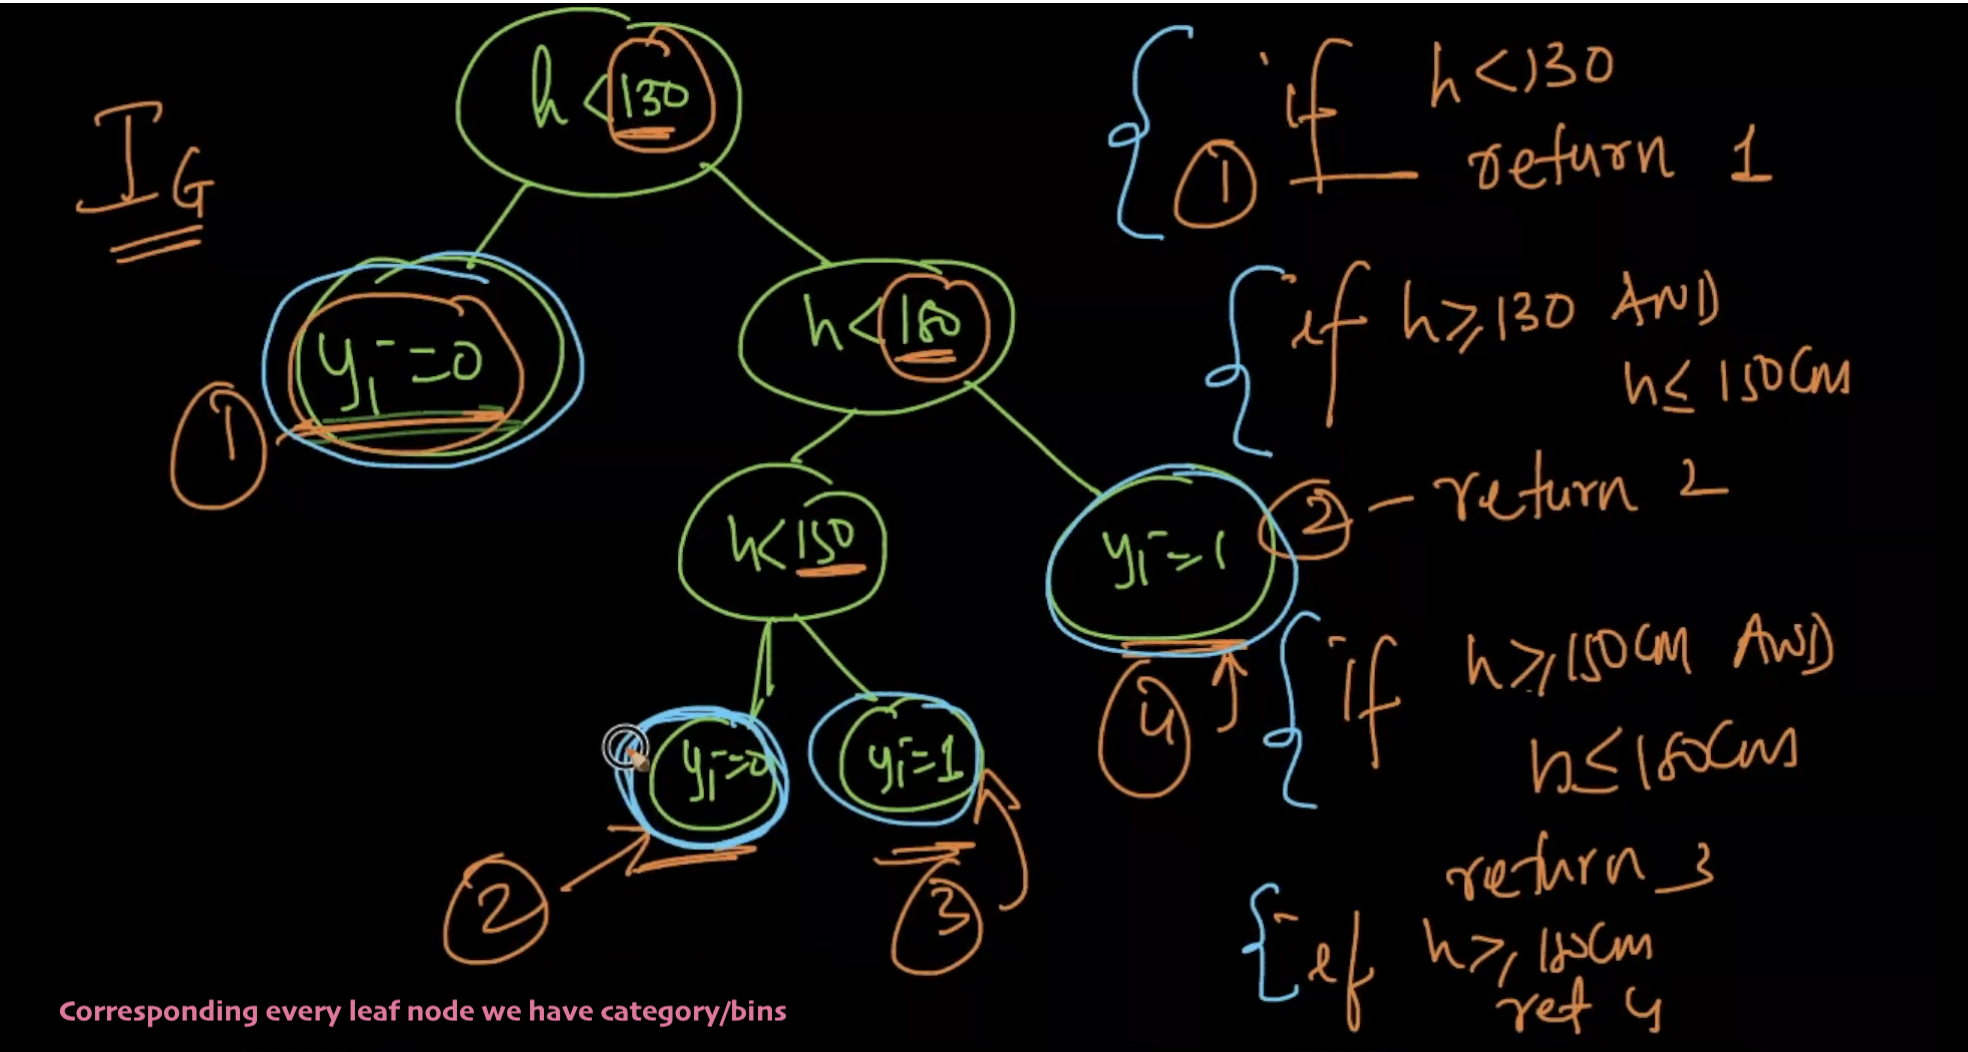 I_G
h < 130
yi = 0
1
h < 180
h < 150
yi = 1
4
yi = 0
2
yi = 1
3
1 if h < 130
return 1
if h ≥ 130 AND
h ≤ 150cm
2 - return 2
if h ≥ 150cm AND
h ≤ 180cms
return 3
if h ≥ 180cm
ret 4
Corresponding every leaf node we have category/bins